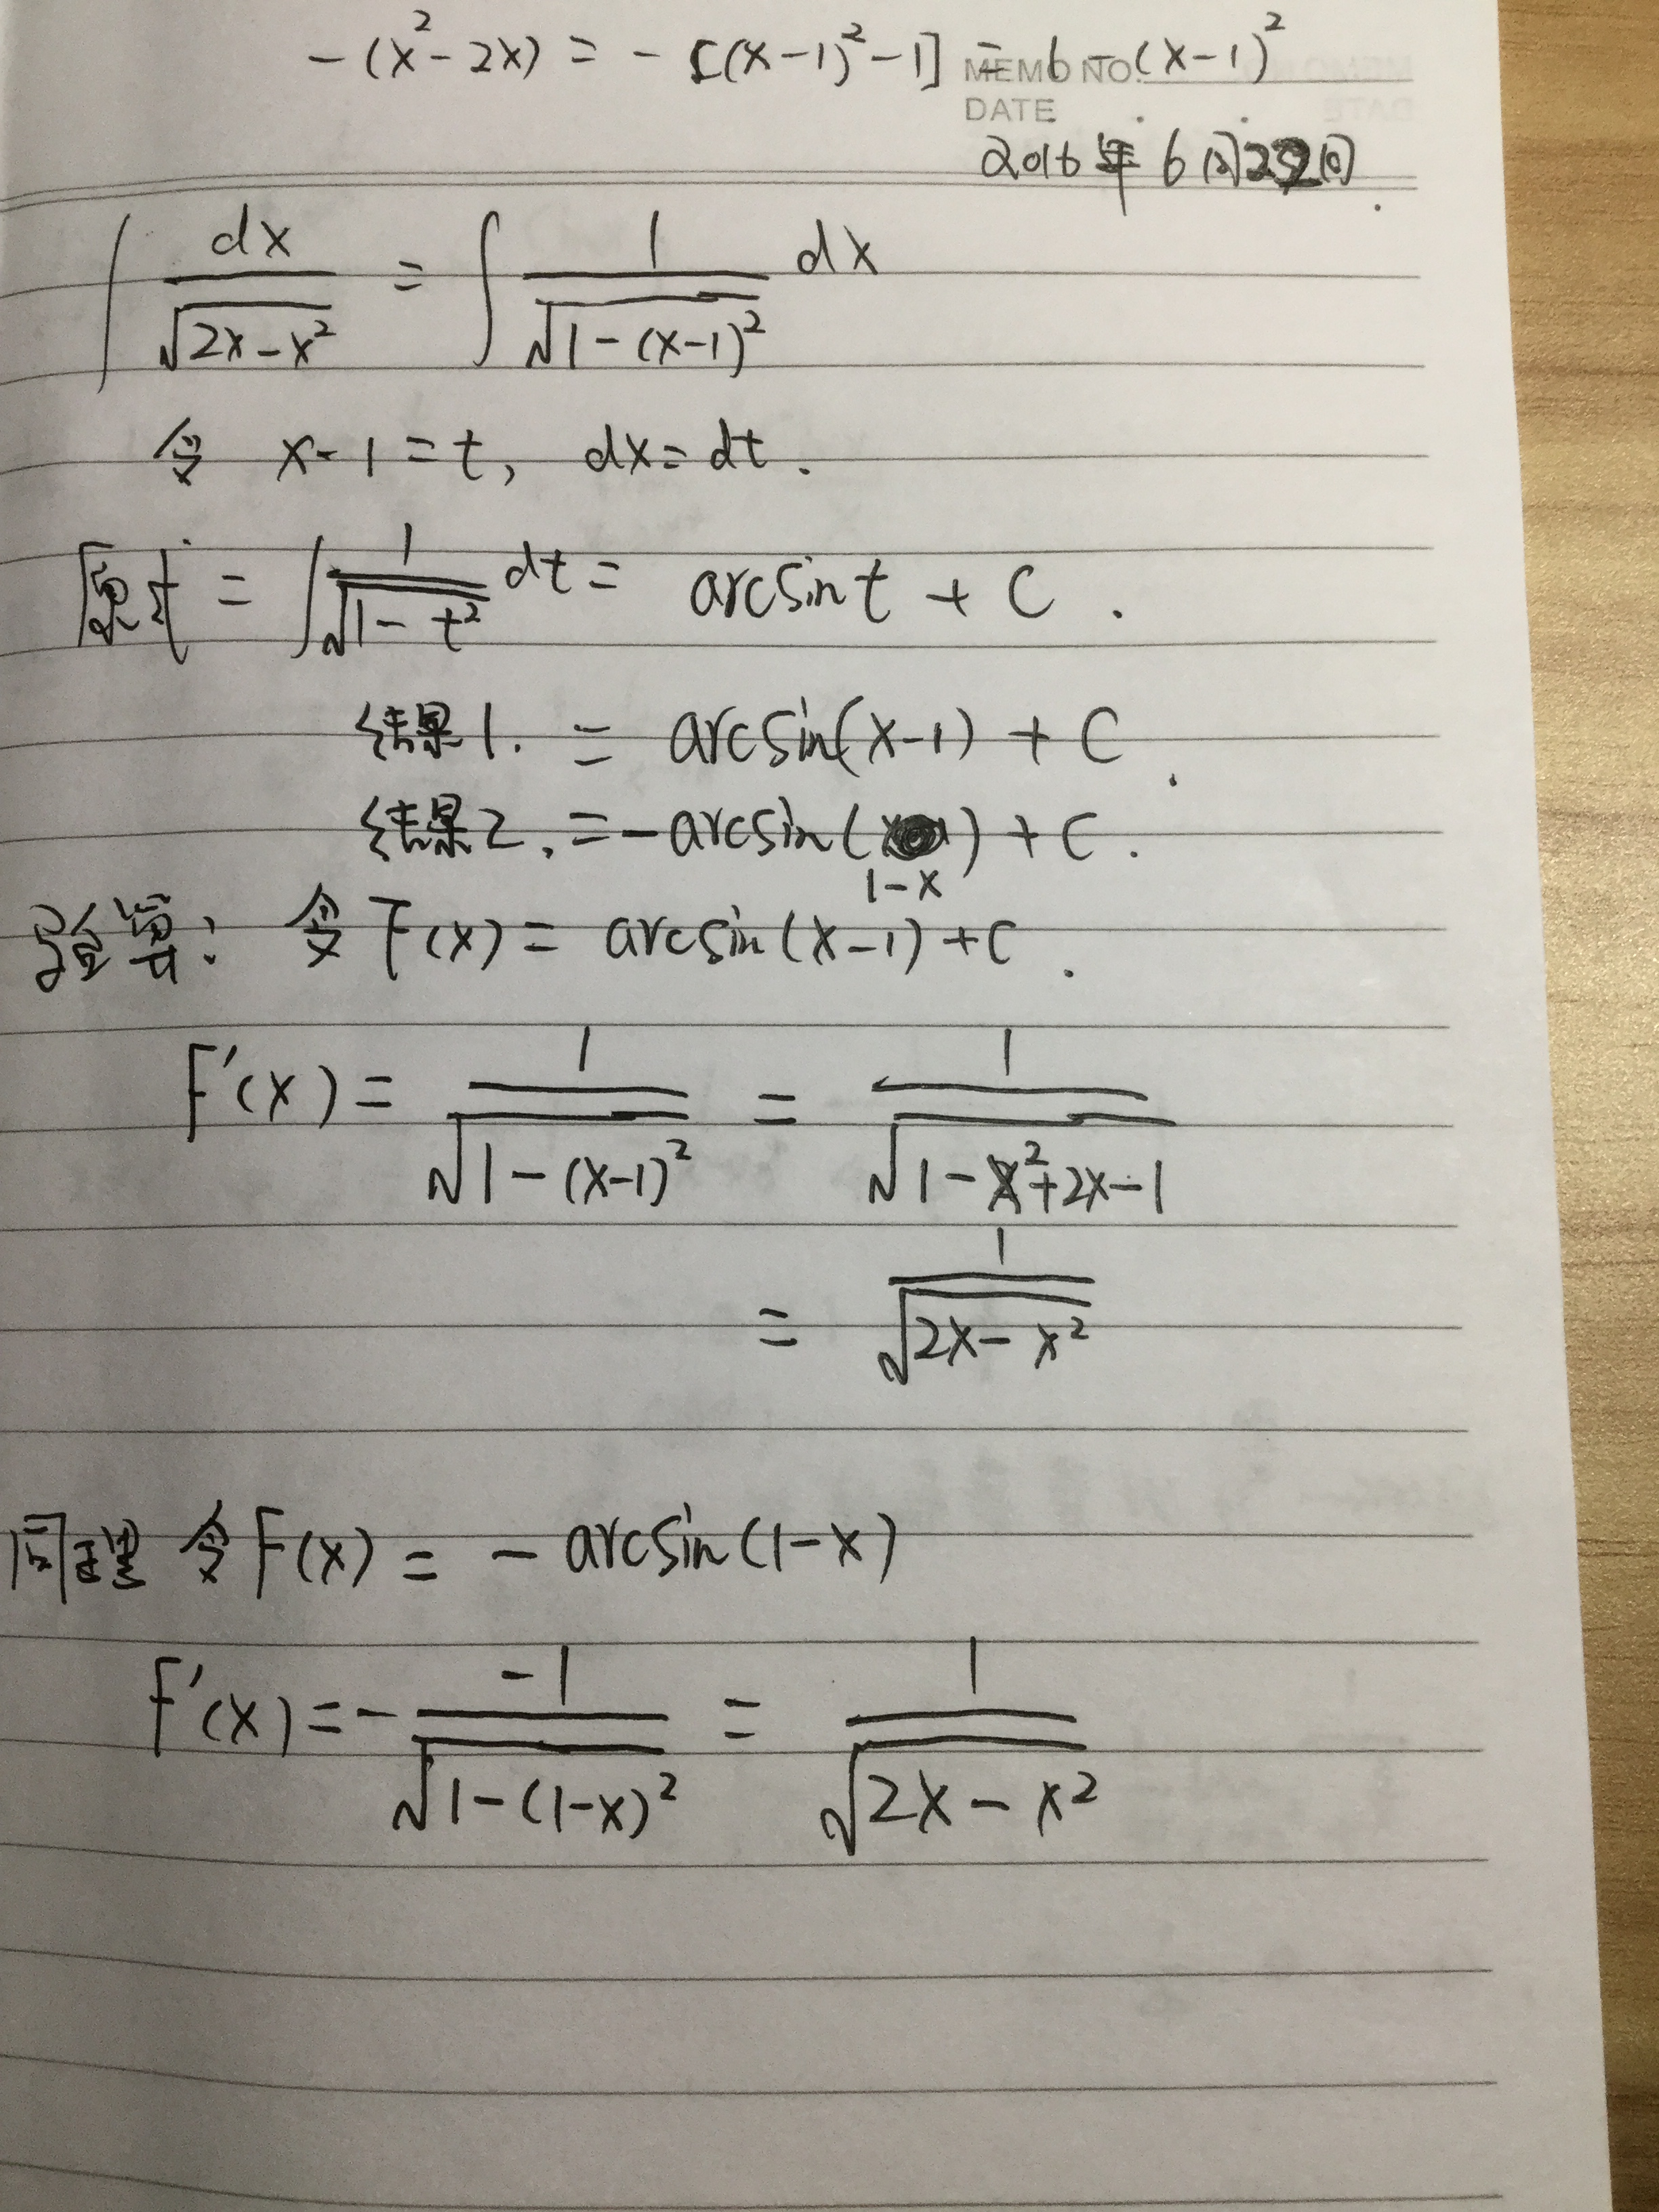 -(x²-2x) = -[(x-1)²-1] = 6-(x-1)²
MEMO NO.
DATE
2016年6月22日
∫ dx/√(2x-x²) = ∫ 1/√(1-(x-1)²) dx
令 x-1=t, dx=dt.
原式 = ∫ 1/√(1-t²) dt = arcsint + C.
结果1. = arcsin(x-1) + C.
结果2. = -arcsin(1-x) + C.
验算: 令F(x) = arcsin(x-1)+C.
F'(x) = 1/√(1-(x-1)²) = 1/√(1-x²+2x-1)
= 1/√(2x-x²)
同理 令F(x) = -arcsin(1-x)
F'(x) = - -1/√(1-(1-x)²) = 1/√(2x-x²)